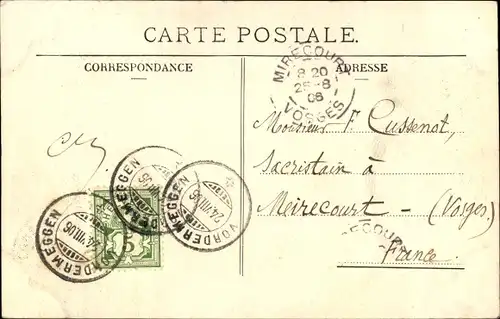 CARTE POSTALE.
CORRESPONDANCE
ADRESSE
MIRECOURT
8 20
25-8
06
VOSGES
Monsieur F. Cussenot,
Sacristain à
Meirecourt - (Vosges)
France.
VORDERMEGGEN
24.VIII.06
VORDERMEGGEN
24.VIII.06
VORDERMEGGEN
24.VIII.06
5